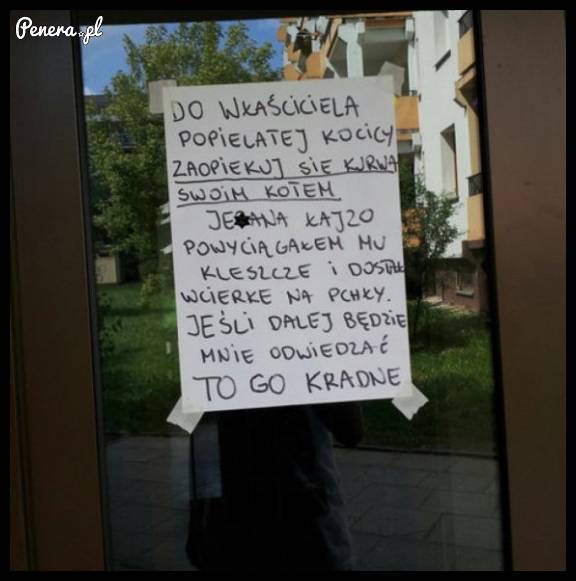 Penera.pl
DO WŁAŚCICIELA
POPIELATEJ KOCICY
ZAOPIEKUJ SIE KURWA
SWOIM KOTEM
JEBANA ŁAJZO
POWYCIĄGAŁEM MU
KLESZCZE I DOSTAŁ
WCIERKE NA PCHŁY.
JEŚLI DALEJ BĘDZIE
MNIE ODWIEDZAĆ
TO GO KRADNE